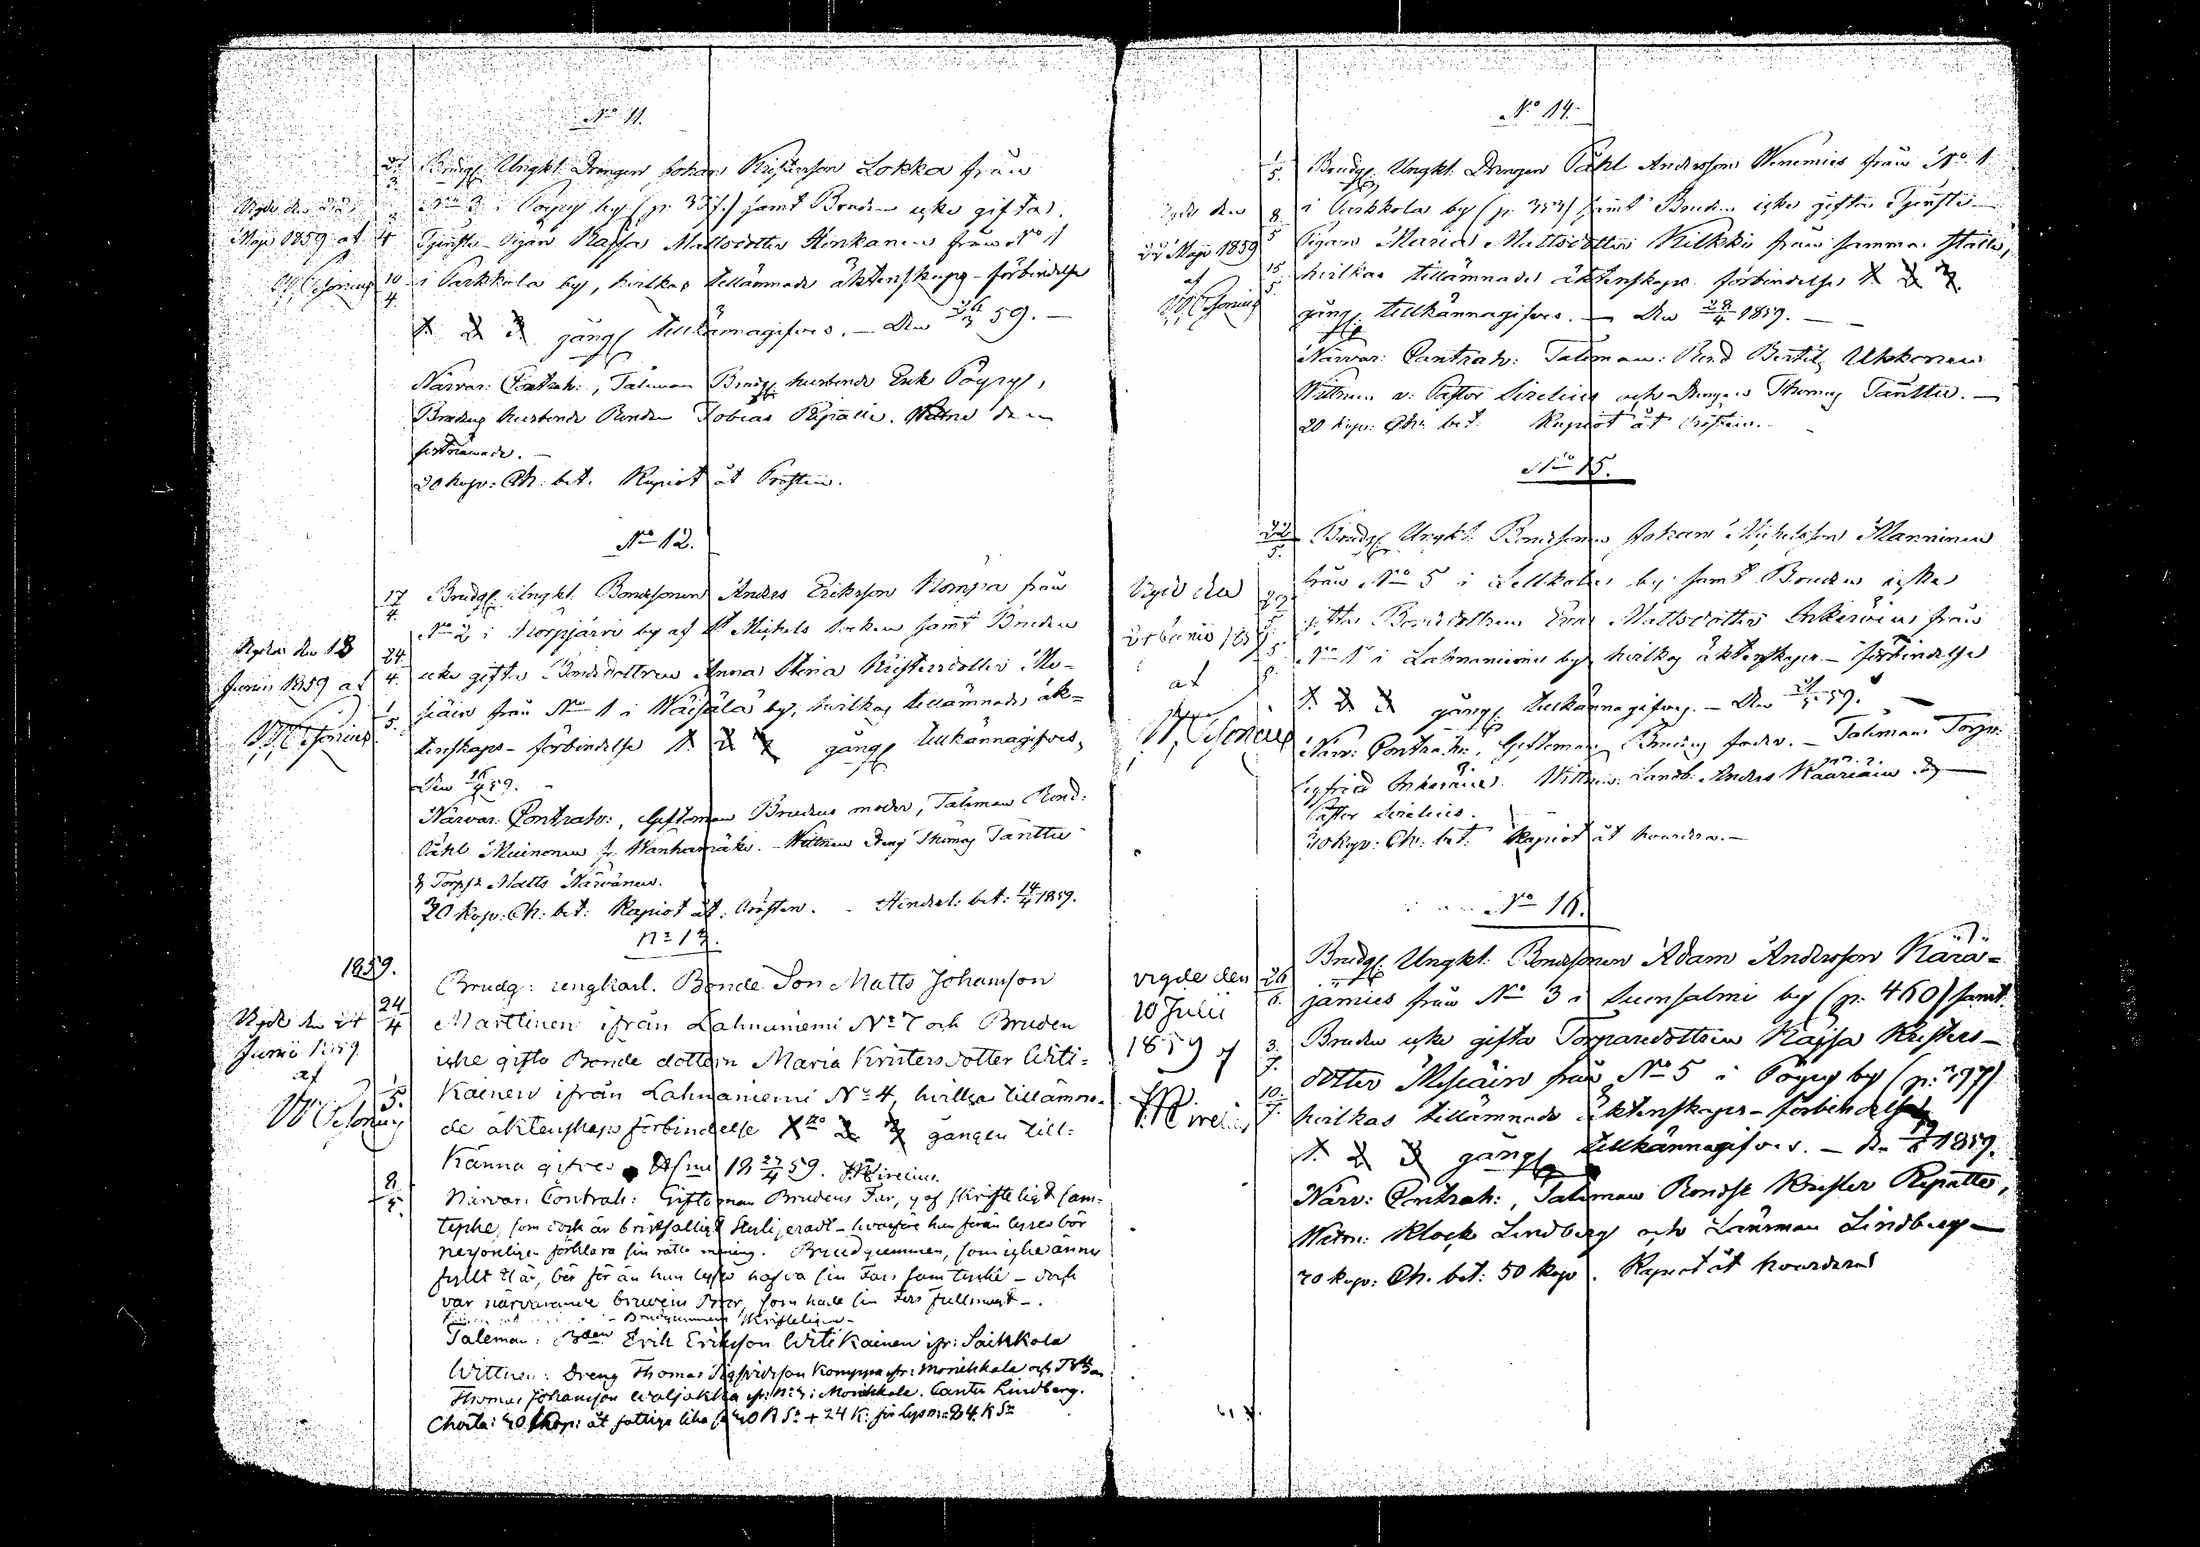 No 11.
Brudg. Ungkl. Drengen Johan Kristersson Lokka från
No 3 i Pöyry by (p. 387.) samt Bruden icke giftas.
Tjenste-Pigan Kajsa Mattsdotter Honkanen från No 1
i Parkkola by, hvilkas tillämnade äktenskaps-förbindelse
1. 2. 3. gång tillkännagifves. — Den 26/3 59. —
Närvar: Contrah:, Taleman Brudg. husbonde Erik Pöyry,
Brudens husbonde Bonden Tobias Repatti. Wittne den
sistnämnde. —
20 kop: Ch: bet. Kapiot åt Prosten.
Vigde den
Maji 1859 af
W Cesonius
10/4
No 12.
17/4 Brudg. Ungkl. Bondesonen Anders Eriksson Kompa från
No 2 i Korpjärvi by af St Michels socken samt Bruden
icke gifta Bondedottren Anna Stina Kristersdotter Me-
siäin från No 1 i Wäisälä by, hvilkas tillämnade äk=
tenskaps-förbindelse 1. 2. 3. gång tillkännagifves,
den 16/4 59. —
Närvar: Contrah:, Giftoman Brudens moder, Taleman Bond:
Påhl Muinonen fr Wanhamäki. Wittnen Dreng Thomas Tanttu
& Torp: Matts Närvänen.
20 Kop: Ch: bet: Kapiot åt Prosten. Hindersl: bet: 14/4 1859.
Vigda den 18
Junii 1859 af
W Cesonius
24/4
1/5
No 13.
1859.
Brudg: ungkarl. Bonde Son Matts Johansson
24/4 Marttinen ifrån Lahnaniemi No 7 och Bruden
icke gifta Bonde dottern Maria Kristersdotter Witi=
kainen ifrån Lahnaniemi No 4, hvilka tillämna-
de äktenskaps förbindelse 1mo 2. 3. gången till=
känna gifves 18 23/4 59. Sirelius.
Närvar: Contrah: Giftoman Brudens Far, gaf skriftligt sam-
tycke, som dock är bristfälligt — hvarföre han förän lyses bör
personligen förklara sin rätta mening. Brudgummen, som icke ännu
fyllt 21 år, bör för än han lyses hafva sin Fars samtycke — dock
var närvarande brudens Bror, som hade sin Fars fullmagt —.
Brudgummens skriftligen —
Taleman: Erik Eriksson Witikainen ifr: Saikkola
Wittnen: Dreng Thomas Sigfridsson Komppa ifr: Monikkala och
Thomas Johansson Waljakka ifr: No 3 i Monikkala. Cantor Lindberg.
Charta: 20 Kop: åt fattiga lika 20 K Sr + 24 K: för lysn: 24 K Sr
Vigde den 24
Junii 1859.
af
W Cesonius
1/5.
8/5.
No 14.
1/5. Brudg. Ungkl. Drengen Påhl Andersson Wenemies från No 1
i Parkkola by (p. 353) samt Bruden icke gifta Tjenste-
Pigan Maria Mattsdotter Kilkki från samma ställe,
hvilkas tillämnade äktenskaps förbindelse 1. 2. 3.
gång tillkännagifves. — den 28/4 1859. —
Närvar: Contrah: Taleman: Bond Bertil Ukkonen
Wittnen v: Pastor Sirelius och Drengen Thomas Tanttu. —
20 kop: Ch: bet: Kapiot åt Prosten.
Vigde den
22 Maji 1859
af
W Cesonius
8/5
15/5.
No 15.
22/5. Brudg. Ungkl. Bondesonen Johan Michelsson Manninen
från No 5 i Sellkala by samt Bruden icke
gifta Bondedottren Eva Mattsdotter Inkeroinen från
No 1 i Lahnaniemi by hvilkas äktenskaps-förbindelse
1. 2. 3. gång tillkännagifves. — Den 21/5 59. —
Närv: Contrah:, Giftoman Brudens fader. — Taleman Torp:
Sigfrid Inkeroinen. Wittnen: Landb: Anders Kääriäin &
Pastor Sirelius.
20 Kop: Ch: bet: Kapiot åt hvardera. —
Vigde den
Junii 1859
af
W Cesonius
29/5
No 16.
Brudg. Ungkl. Bondesonen Adam Andersson Kärä-
jämies från No 3 i Suonsalmi by (p: 460) samt
Bruden icke gifta Torparedottren Kajsa Kristers-
dotter Mesiäin från No 5 i Pöyry by (p: 397)
hvilkas tillämnade äktenskaps-förbindelse
1. 2. 3. gång tillkännagifves. — den 19/6 1859.
Närv: Contrah:, Taleman Bonde Krister Repatte,
Wittn: Klock Lindberg och Länsman Lindberg —
20 kop: Ch. bet: 50 kop. Kapiot åt hvardera
vigde den
10 Julii
1859 af
Sirelius
26/6.
3/7.
10/7.